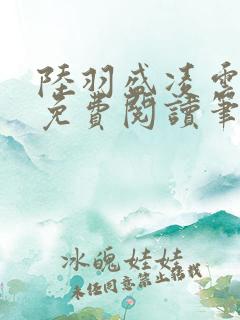 陸羽盛凌雲
免費閱讀筆
冰魄娃娃
未經同意禁止轉載